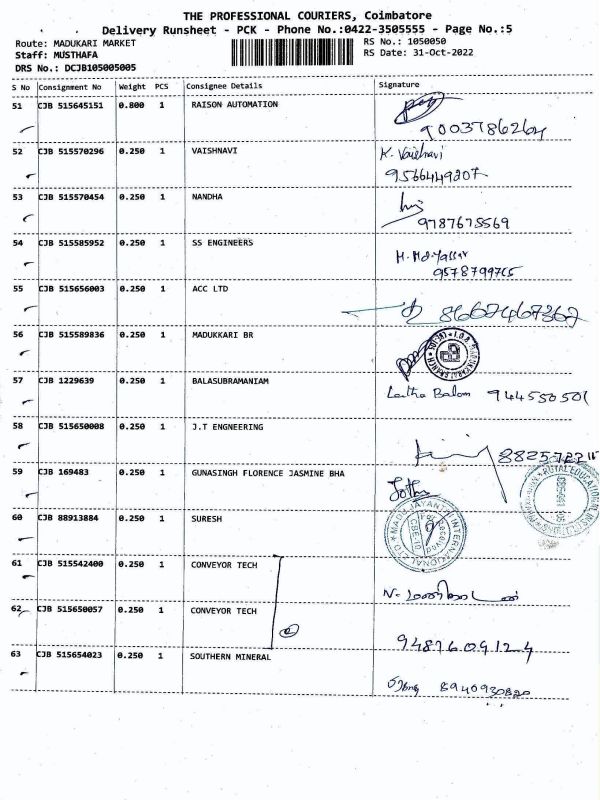 THE PROFESSIONAL COURIERS, Coimbatore
Delivery Runsheet - PCK - Phone No.:0422-3505555 - Page No.:5
Route: MADUKARI MARKET
RS No.: 1050050
Staff: MUSTHAFA
RS Date: 31-Oct-2022
DRS No.: DCJB105005005
S No Consignment No Weight PCS Consignee Details Signature
51 CJB 515645151 0.800 1 RAISON AUTOMATION
9003786264
52 CJB 515570296 0.250 1 VAISHNAVI K. Vaishnavi
9566449207
53 CJB 515570454 0.250 1 NANDHA
9787675569
54 CJB 515585952 0.250 1 SS ENGINEERS
9578799765
55 CJB 515656003 0.250 1 ACC LTD 8667467362
56 CJB 515589836 0.250 1 MADUKKARI BR
57 CJB 1229639 0.250 1 BALASUBRAMANIAM
944550501
58 CJB 515650008 0.250 1 J.T ENGNEERING
59 CJB 169483 0.250 1 GUNASINGH FLORENCE JASMINE BHA
60 CJB 88913884 0.250 1 SURESH
61 CJB 515542400 0.250 1 CONVEYOR TECH
62 CJB 515650057 0.250 1 CONVEYOR TECH
9487609124
63 CJB 515654023 0.250 1 SOUTHERN MINERAL
8940930820